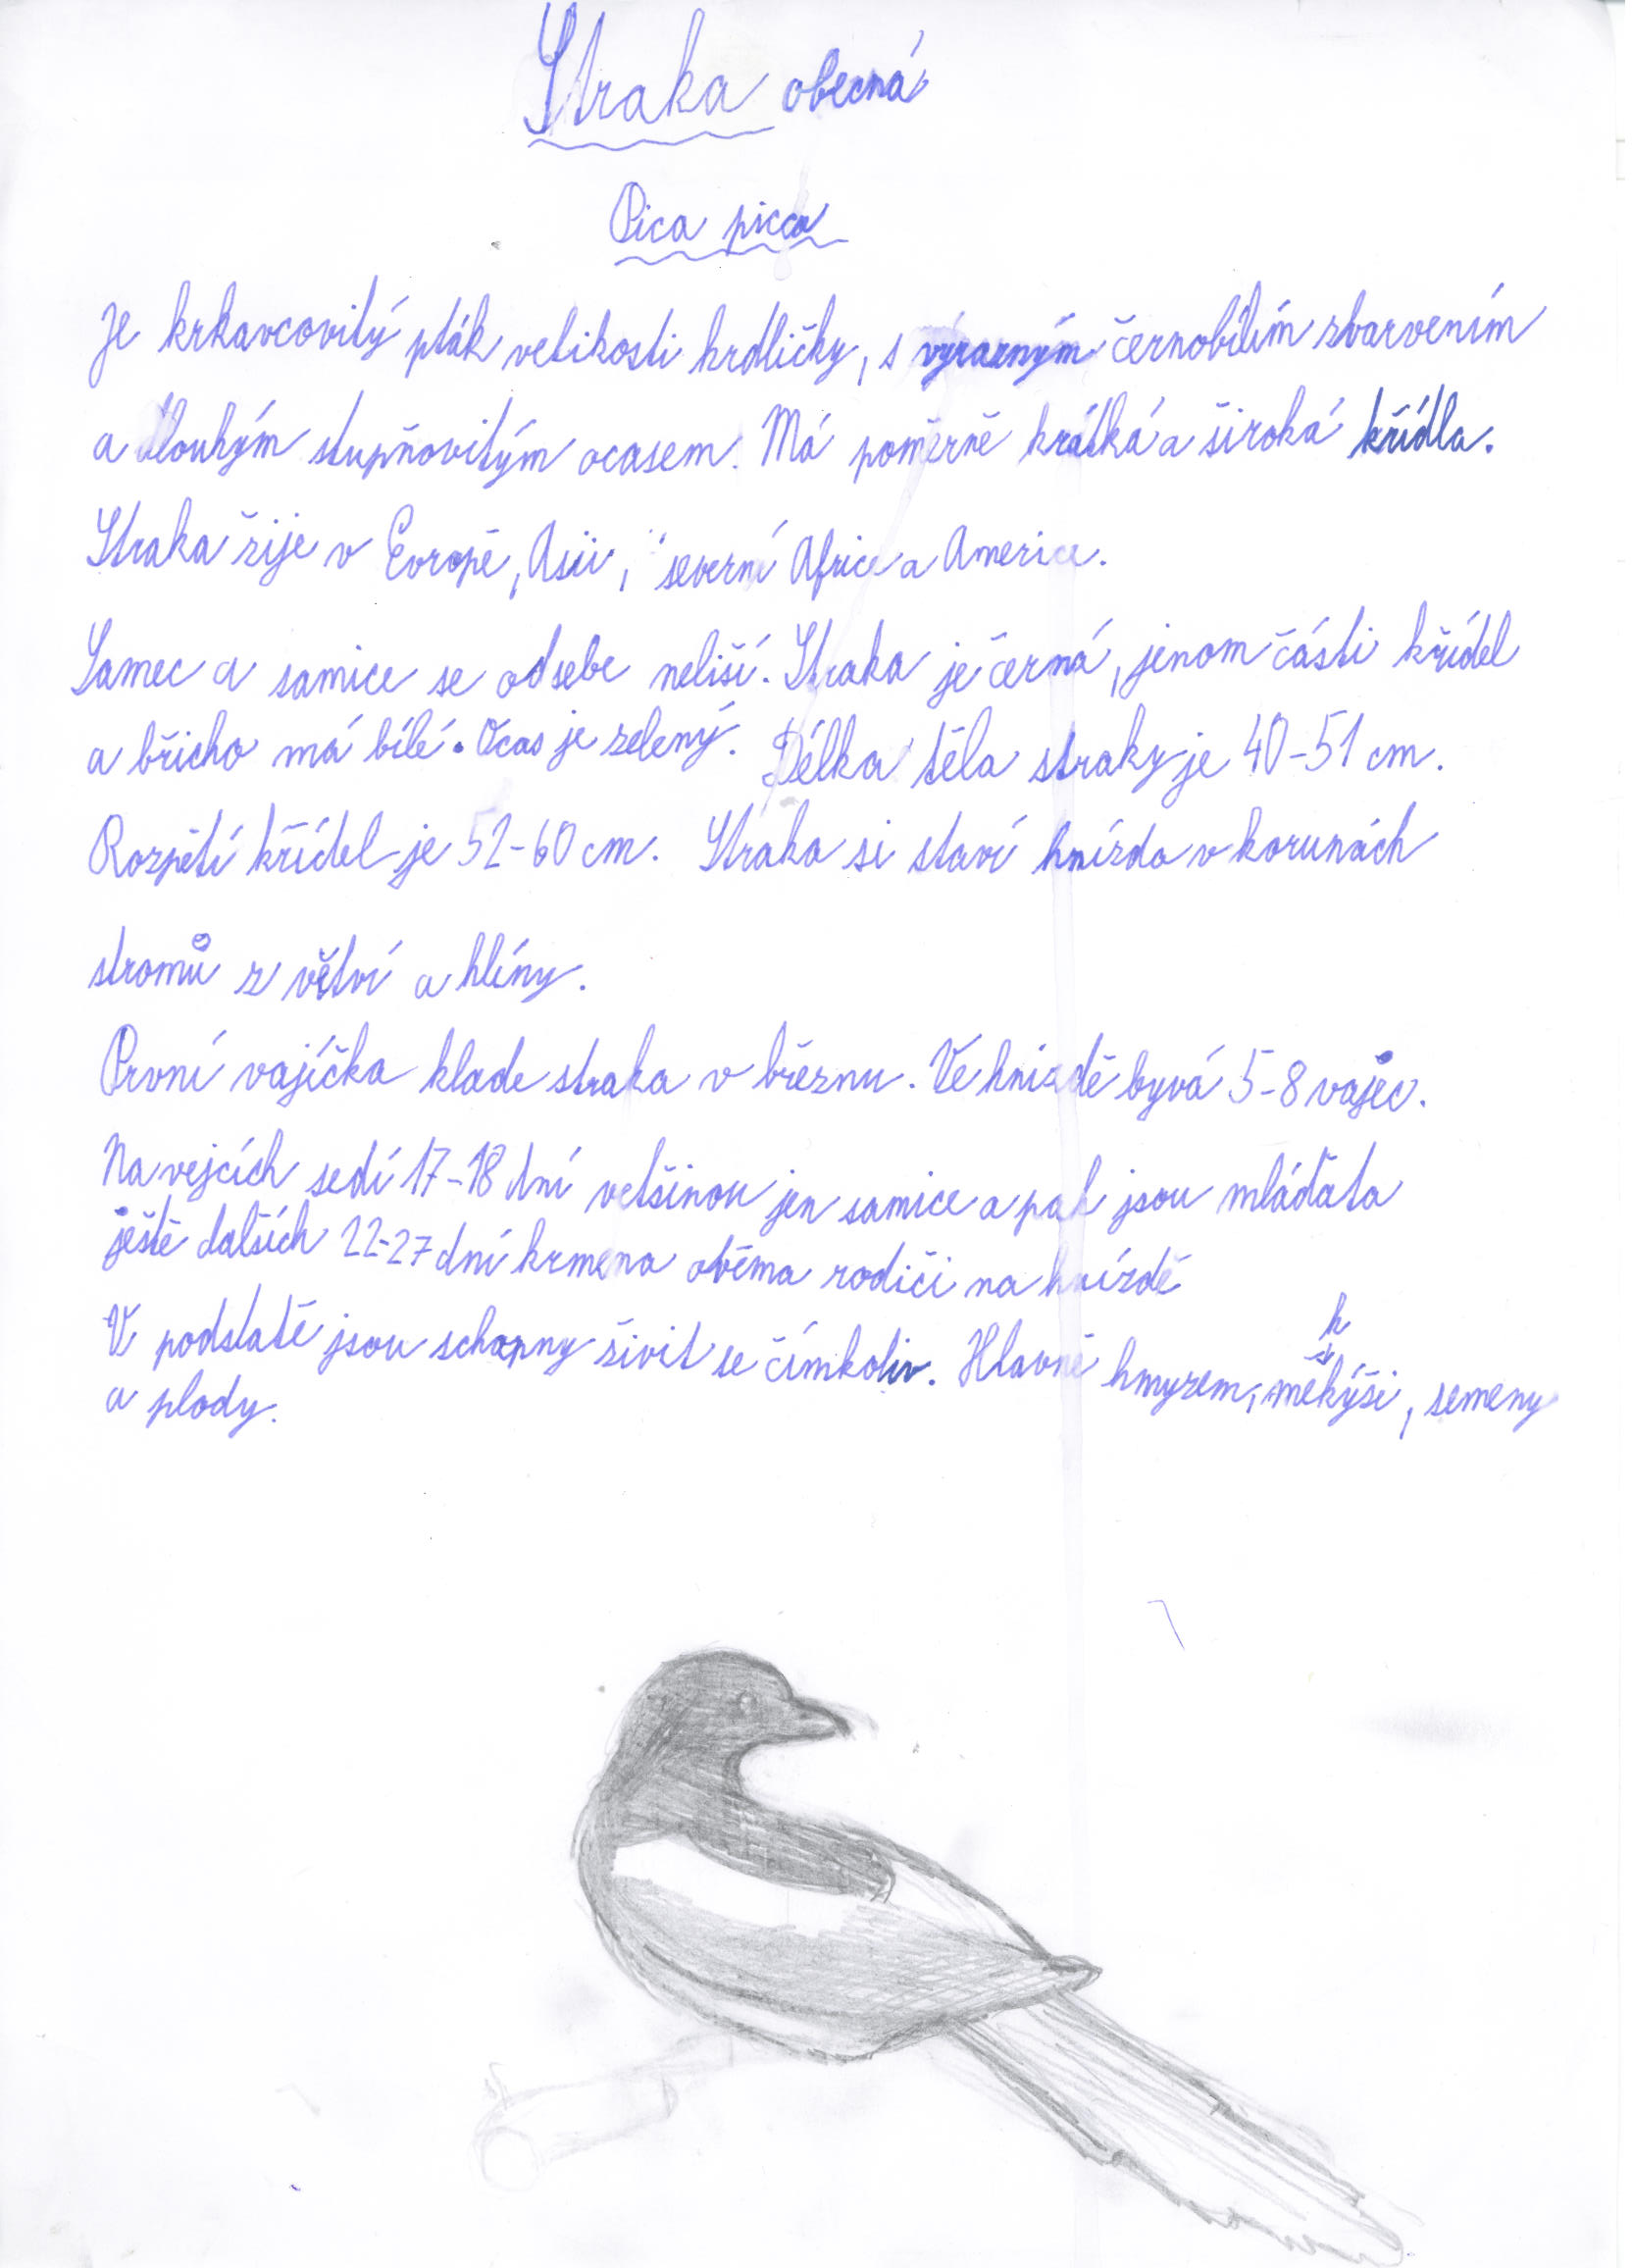 Straka obecná
Pica picca
Je krkavcovitý pták velikosti hrdličky, s výrazným černobílím zbarvením
a dlouhým stupňovitým ocasem. Má poměrně krátká a široká křídla.
Straka žije v Evropě, Asii, severní Africe a Americe.
Samec a samice se od sebe neliší. Straka je černá, jenom části křídel
a břicho má bílé. Ocas je zelený. Délka těla straky je 40-51 cm.
Rozpětí křídel je 52-60 cm. Straka si staví hnízda v korunách
stromů z větví a hlíny.
První vajíčka klade straka v březnu. Ve hnízdě bývá 5-8 vajec.
Na vejcích sedí 17-18 dní vetšinou jen samice a pak jsou mláďata
ještě dalších 22-27 dní krmena oběma rodiči na hnízdě
V podstatě jsou schopny živit se čímkoliv. Hlavně hmyzem, měkkýši, semeny
a plody.